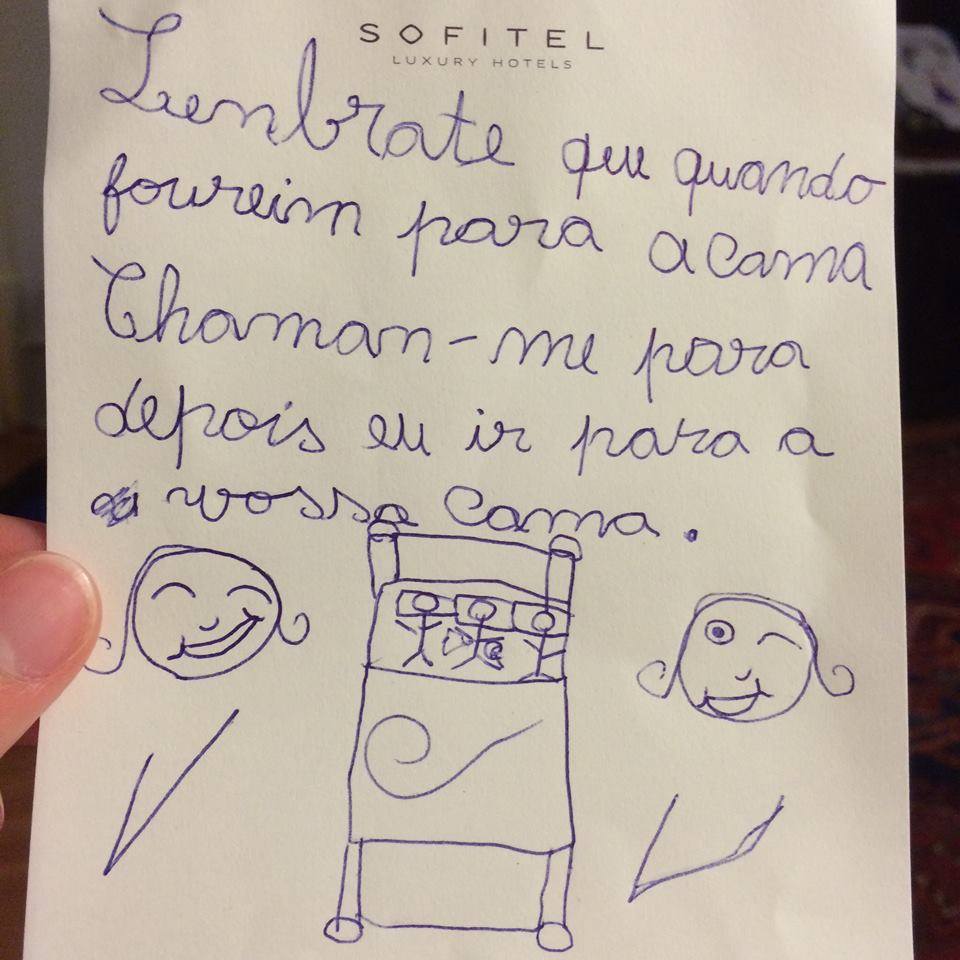 SOFITEL
LUXURY HOTELS
Lenbrate que quando
foureim para a cama
Chaman-me para
depois eu ir para a
vossa cama.